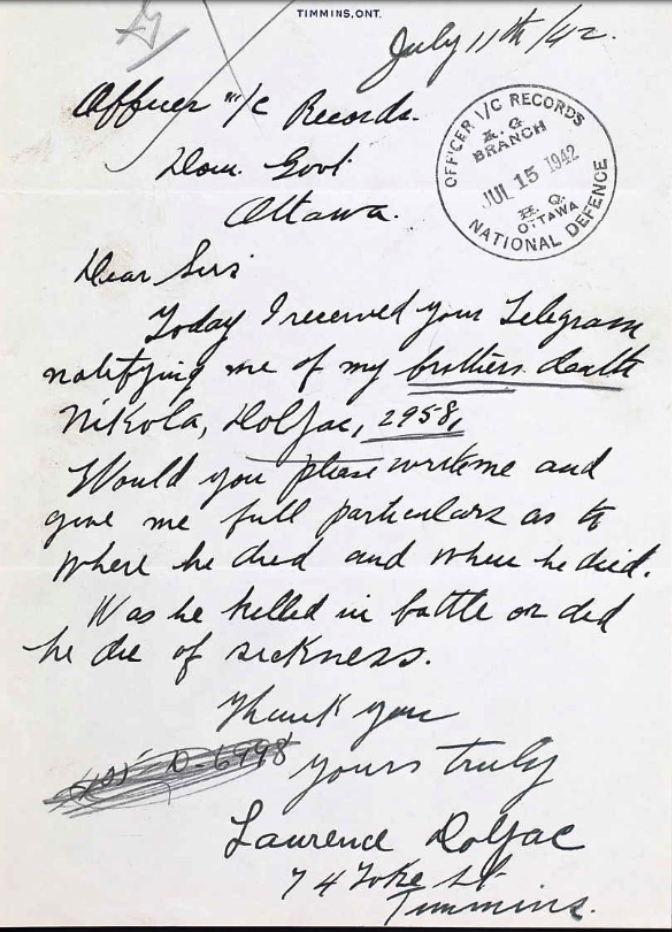 TIMMINS, ONT.
July 11th /42.
Officer i/c Records.
Dom. Govt
Ottawa.
OFFICER I/C RECORDS
A. G.
BRANCH
JUL 15 1942
H. Q.
OTTAWA
NATIONAL DEFENCE
Dear Sirs
Today I received your Telegram
notifying me of my brothers death
Nikola, Doljac, 2958,
Would you please write me and
give me full particulars as to
where he died and when he died.
Was he killed in battle or did
he die of sickness.
Thank you
yours truly
Laurence Doljac
74 St
Timmins.